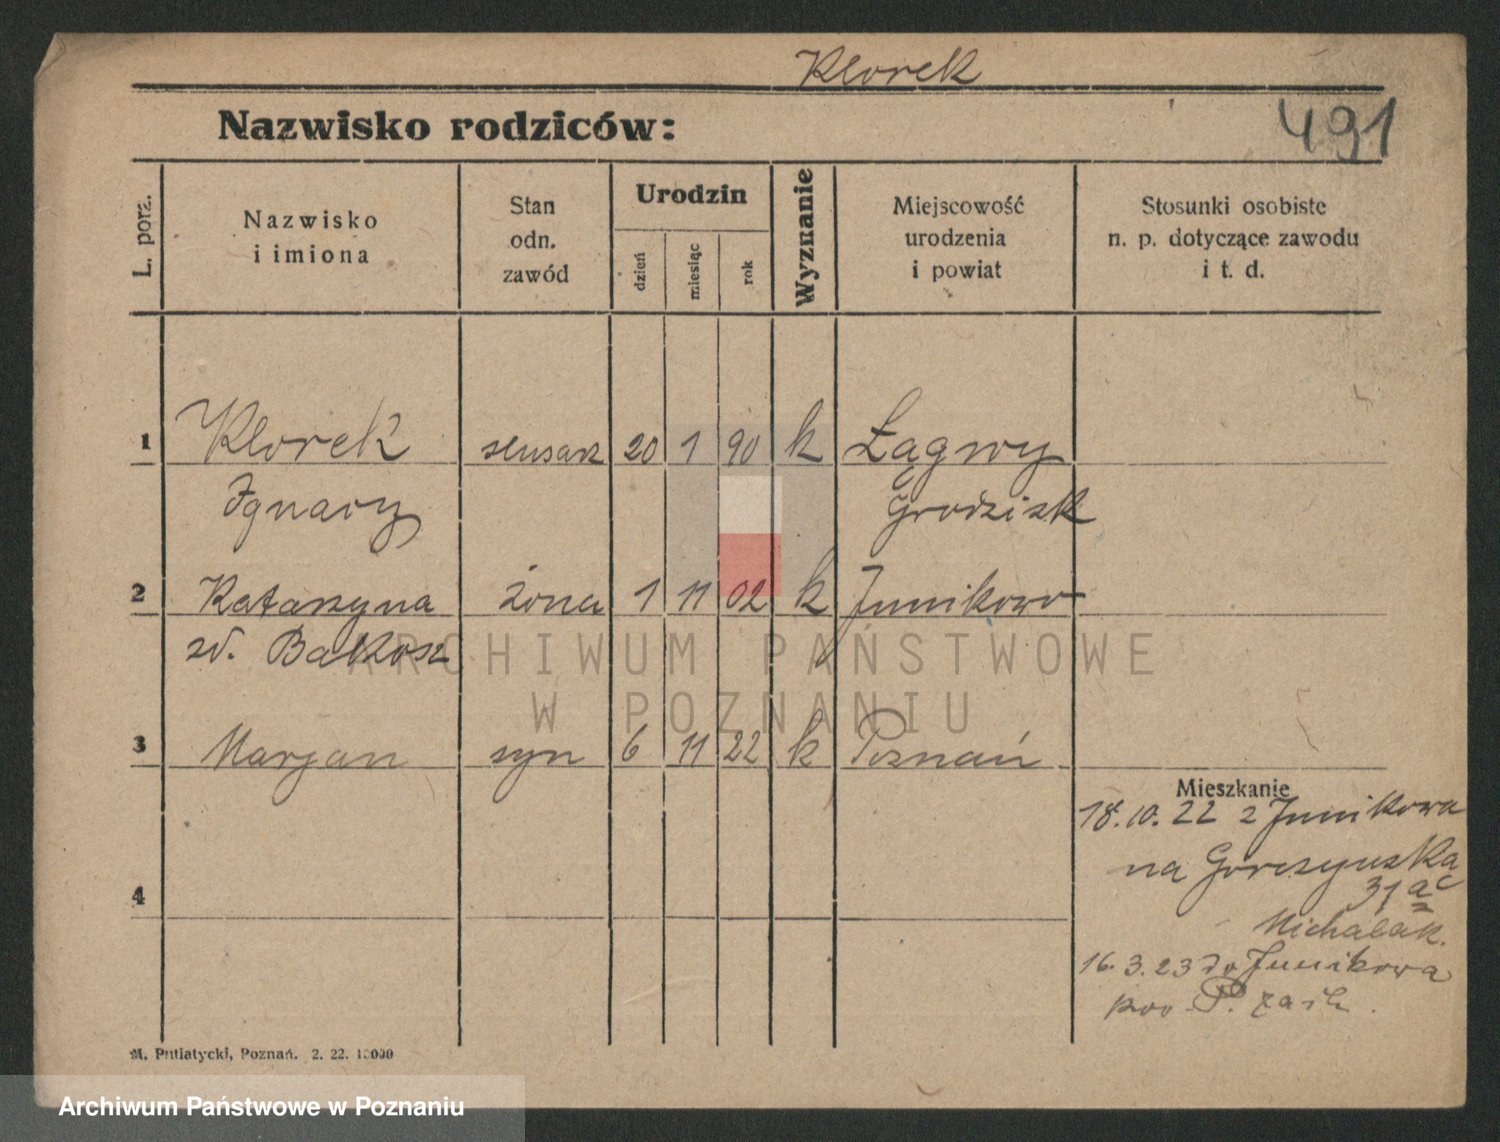 Klorek
491
Nazwisko rodziców:
L. porz.
Nazwisko
i imiona
Stan
odn.
zawód
Urodzin
dzień
miesiąc
rok
Wyznanie
Miejscowość
urodzenia
i powiat
Stosunki osobiste
n. p. dotyczące zawodu
i t. d.
1 Klorek slusarz 20 1 90 k Łągwy
Ignacy Grodzisk
2 Katarzyna żona 1 11 02 k Junikowo
zd. Bakosz
3 Marjan syn 6 11 22 k Poznań
Mieszkanie
18.10.22 z Junikowa
na Gorczyńska
31
Michalak.
4
16.3.23 do Junikowa
pow. P. zach.
M. Putiatycki, Poznań. 2. 22. 10000
ARCHIWUM PAŃSTWOWE
W POZNANIU
Archiwum Państwowe w Poznaniu